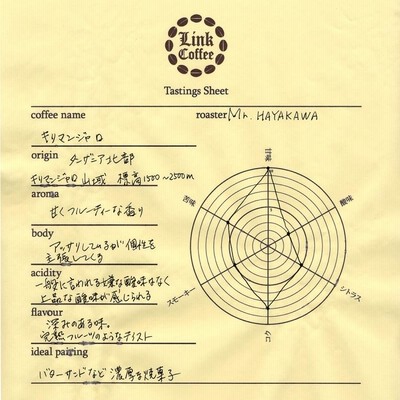 Link
Coffee
Tastings Sheet
coffee name
roaster Mr. HAYAKAWA
キリマンジャロ
origin タンザニア北部
キリマンジャロ山域 標高1500~2500m
aroma
甘くフルーティーな香り
body
アッサリしているが個性を
主張してくる
acidity
一般に言われる様な酸味はなく
上品な酸味が感じられる
flavour
深みのある味。
完熟フルーツのようなテイスト
ideal pairing
バターサンドなど濃厚な焼菓子
甘味
苦味
酸味
スモーキー
シトラス
コク